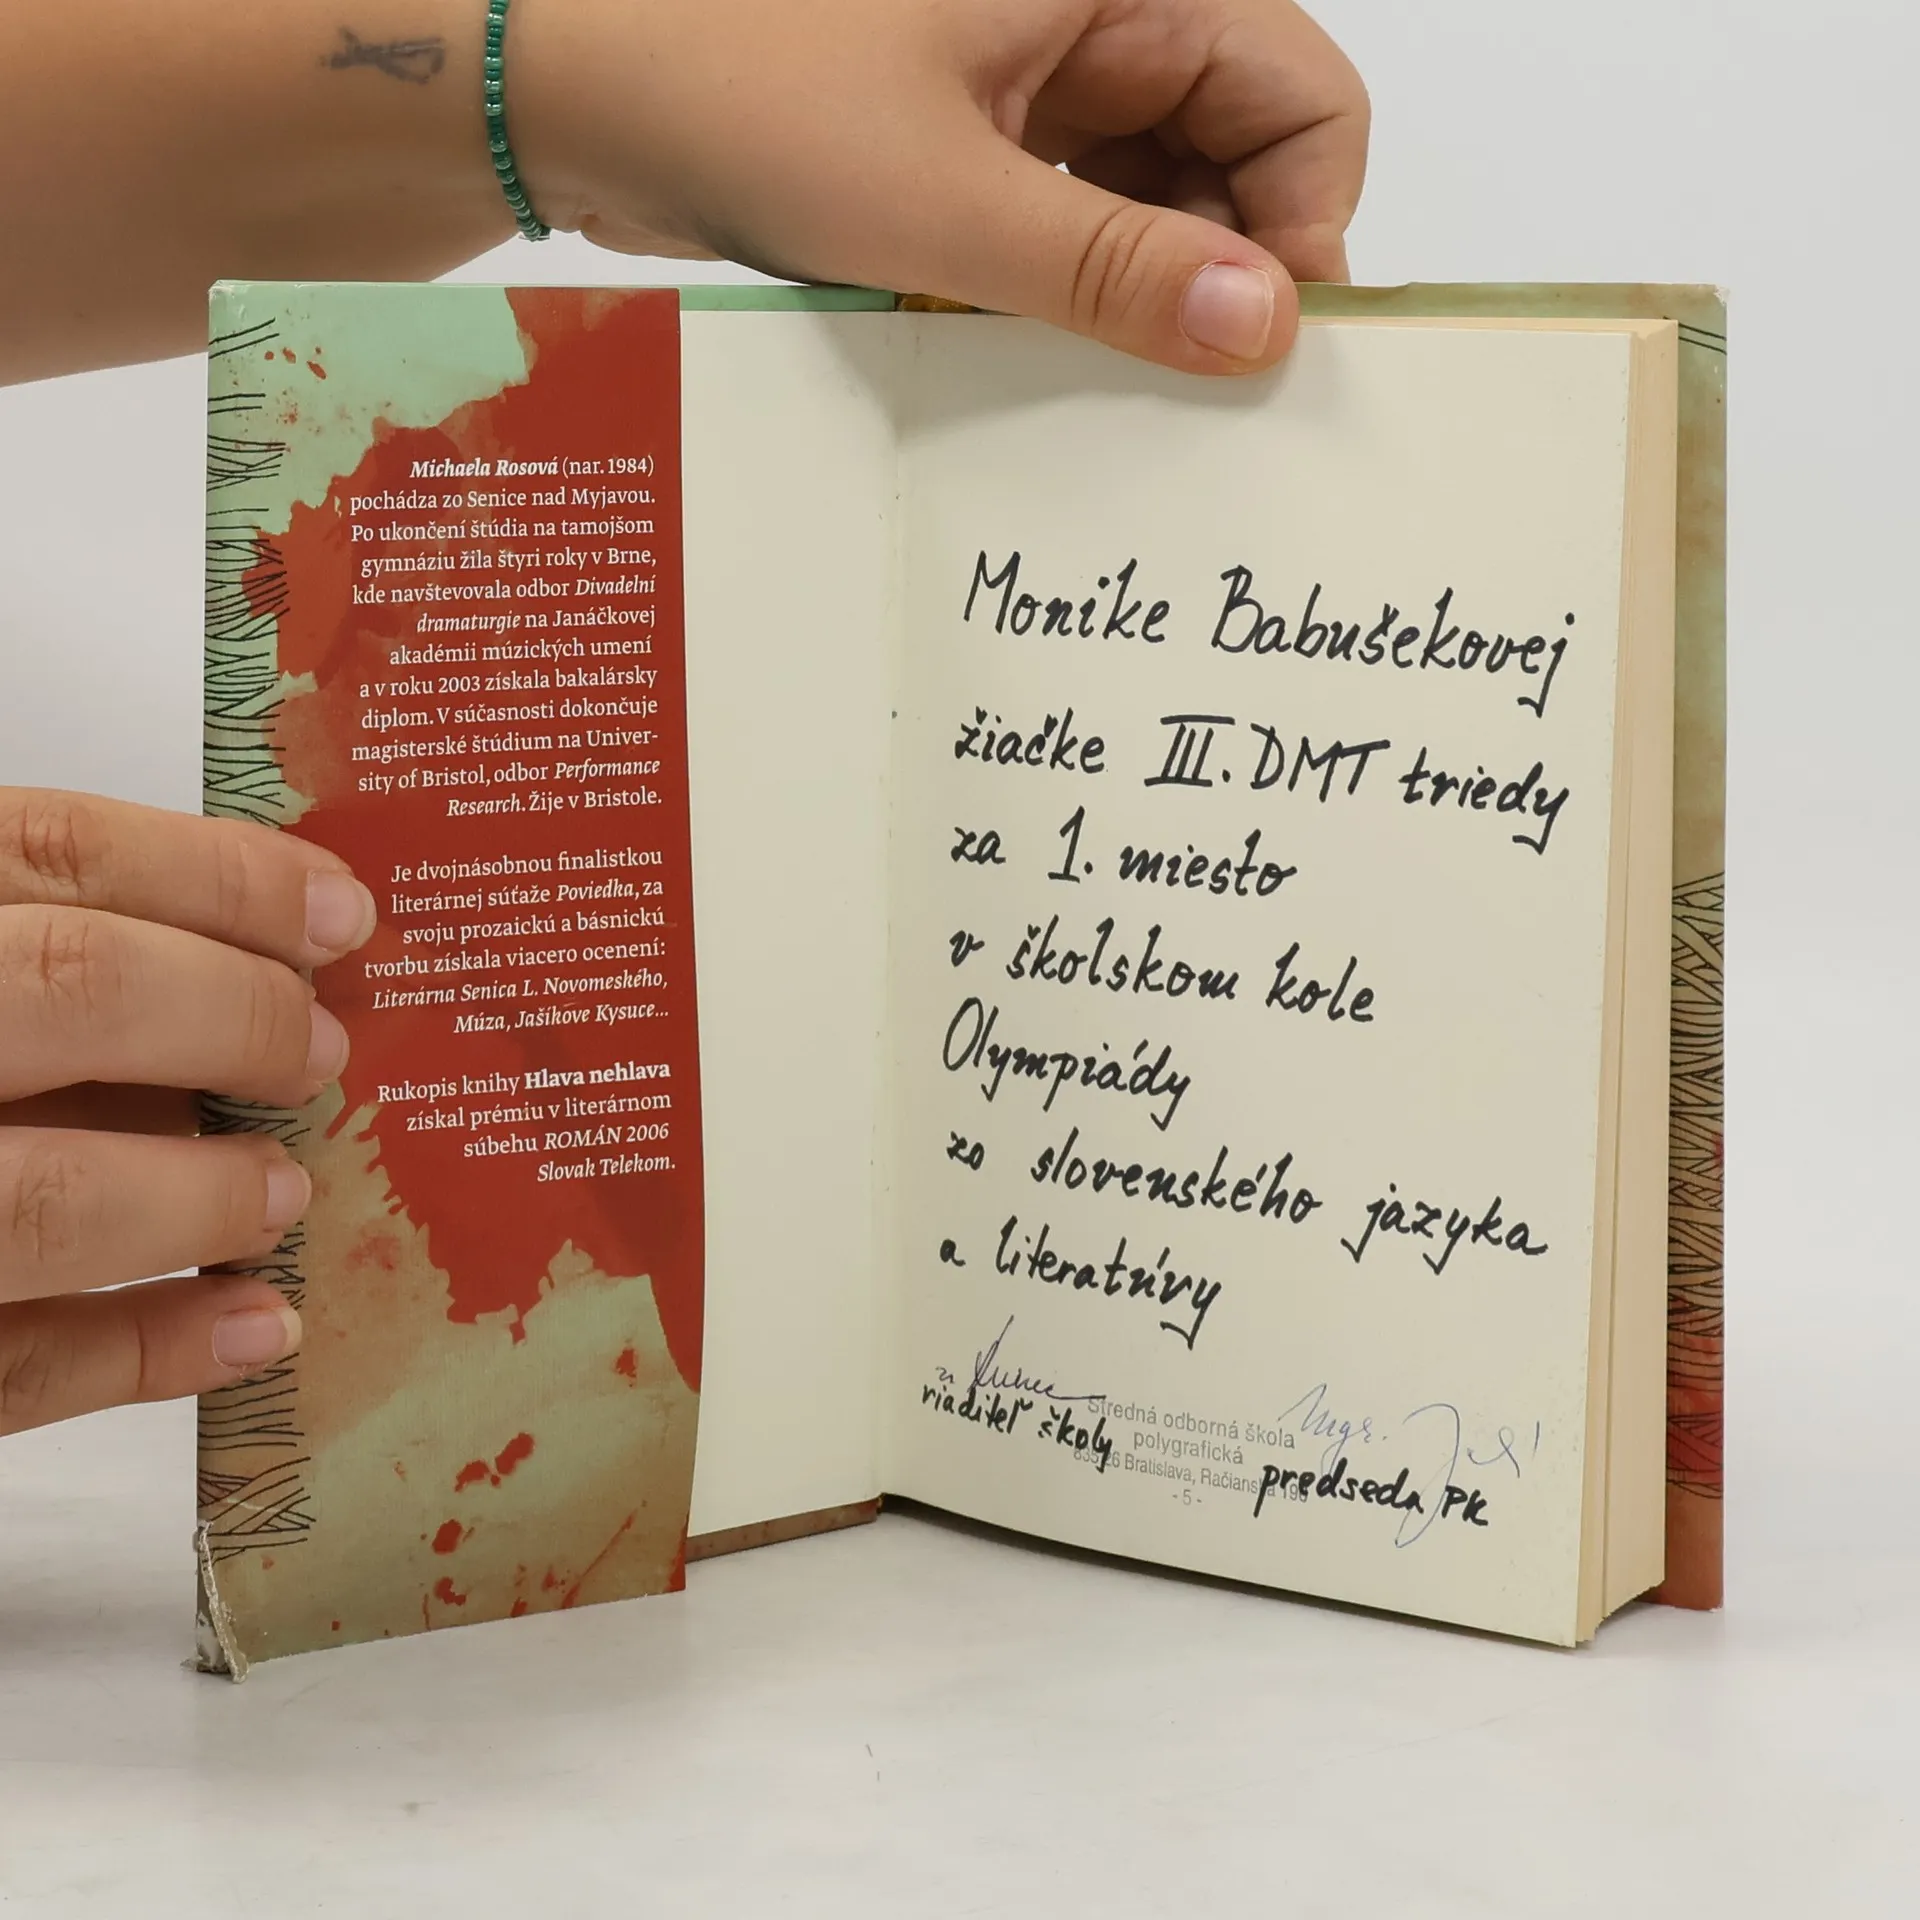 Michaela Rosová (nar. 1984)
pochádza zo Senice nad Myjavou.
Po ukončení štúdia na tamojšom
gymnáziu žila štyri roky v Brne,
kde navštevovala odbor Divadelní
dramaturgie na Janáčkovej
akadémii múzických umení
a v roku 2003 získala bakalársky
diplom. V súčasnosti dokončuje
magisterské štúdium na Univer-
sity of Bristol, odbor Performance
Research. Žije v Bristole.
Je dvojnásobnou finalistkou
literárnej súťaže Poviedka, za
svoju prozaickú a básnickú
tvorbu získala viacero ocenení:
Literárna Senica L. Novomeského,
Múza, Jašíkove Kysuce...
Rukopis knihy Hlava nehlava
získal prémiu v literárnom
súbehu ROMÁN 2006
Slovak Telekom.
Monike Babušekovej
žiačke III. DMT triedy
za 1. miesto
v školskom kole
Olympiády
zo slovenského jazyka
a literatúry
riaditeľ školy
Stredná odborná škola
polygrafická
835 26 Bratislava, Račianska 190
- 5 -
Mgr.
predseda PK